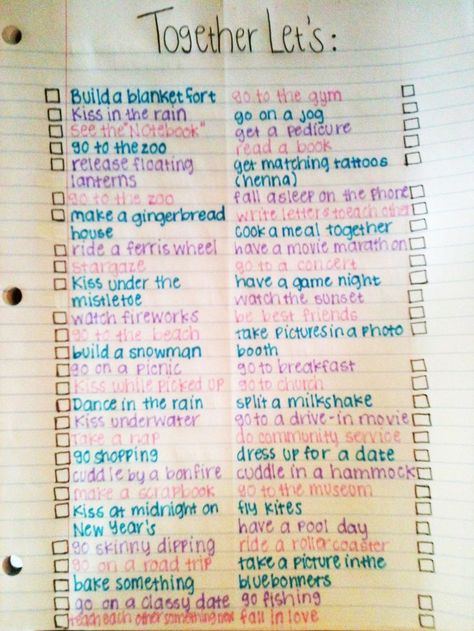 Together Let's:
Build a blanket fort
Kiss in the rain
see the "Notebook"
go to the zoo
release floating
lanterns
go to the zoo
make a gingerbread
house
ride a ferris wheel
Stargaze
Kiss under the
mistletoe
watch fireworks
go to the beach
build a snowman
go on a picnic
Kiss while picked up
Dance in the rain
Kiss underwater
Take a nap
go shopping
cuddle by a bonfire
make a scrapbook
Kiss at midnight on
New Year's
go skinny dipping
go on a road trip
bake something
go on a classy date
teach each other something new
go to the gym
go on a jog
get a pedicure
read a book
get matching tattoos
(henna)
fall asleep on the phone
write letters to each other
cook a meal together
have a movie marathon
go to a concert
have a game night
watch the sunset
be best friends
take pictures in a photo
booth
go to breakfast
go to church
split a milkshake
go to a drive-in movie
do community service
dress up for a date
cuddle in a hammock
go to the museum
fly kites
have a pool day
ride a roller coaster
take a picture in the
bluebonners
go fishing
fall in love